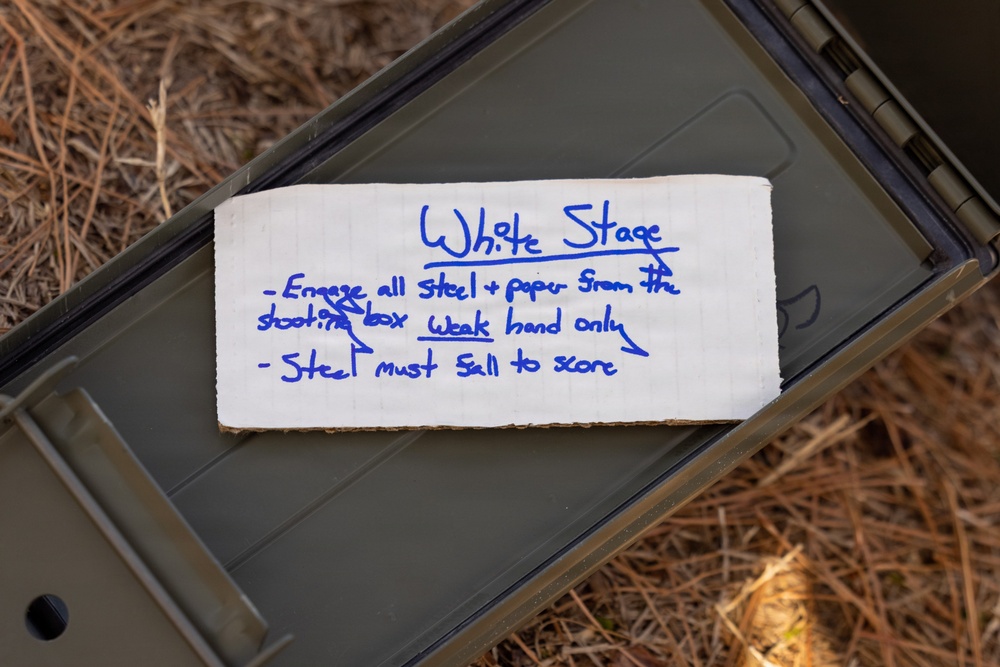 White Stage
- Engage all steel + paper from the
shooting box weak hand only
- Steel must fall to score